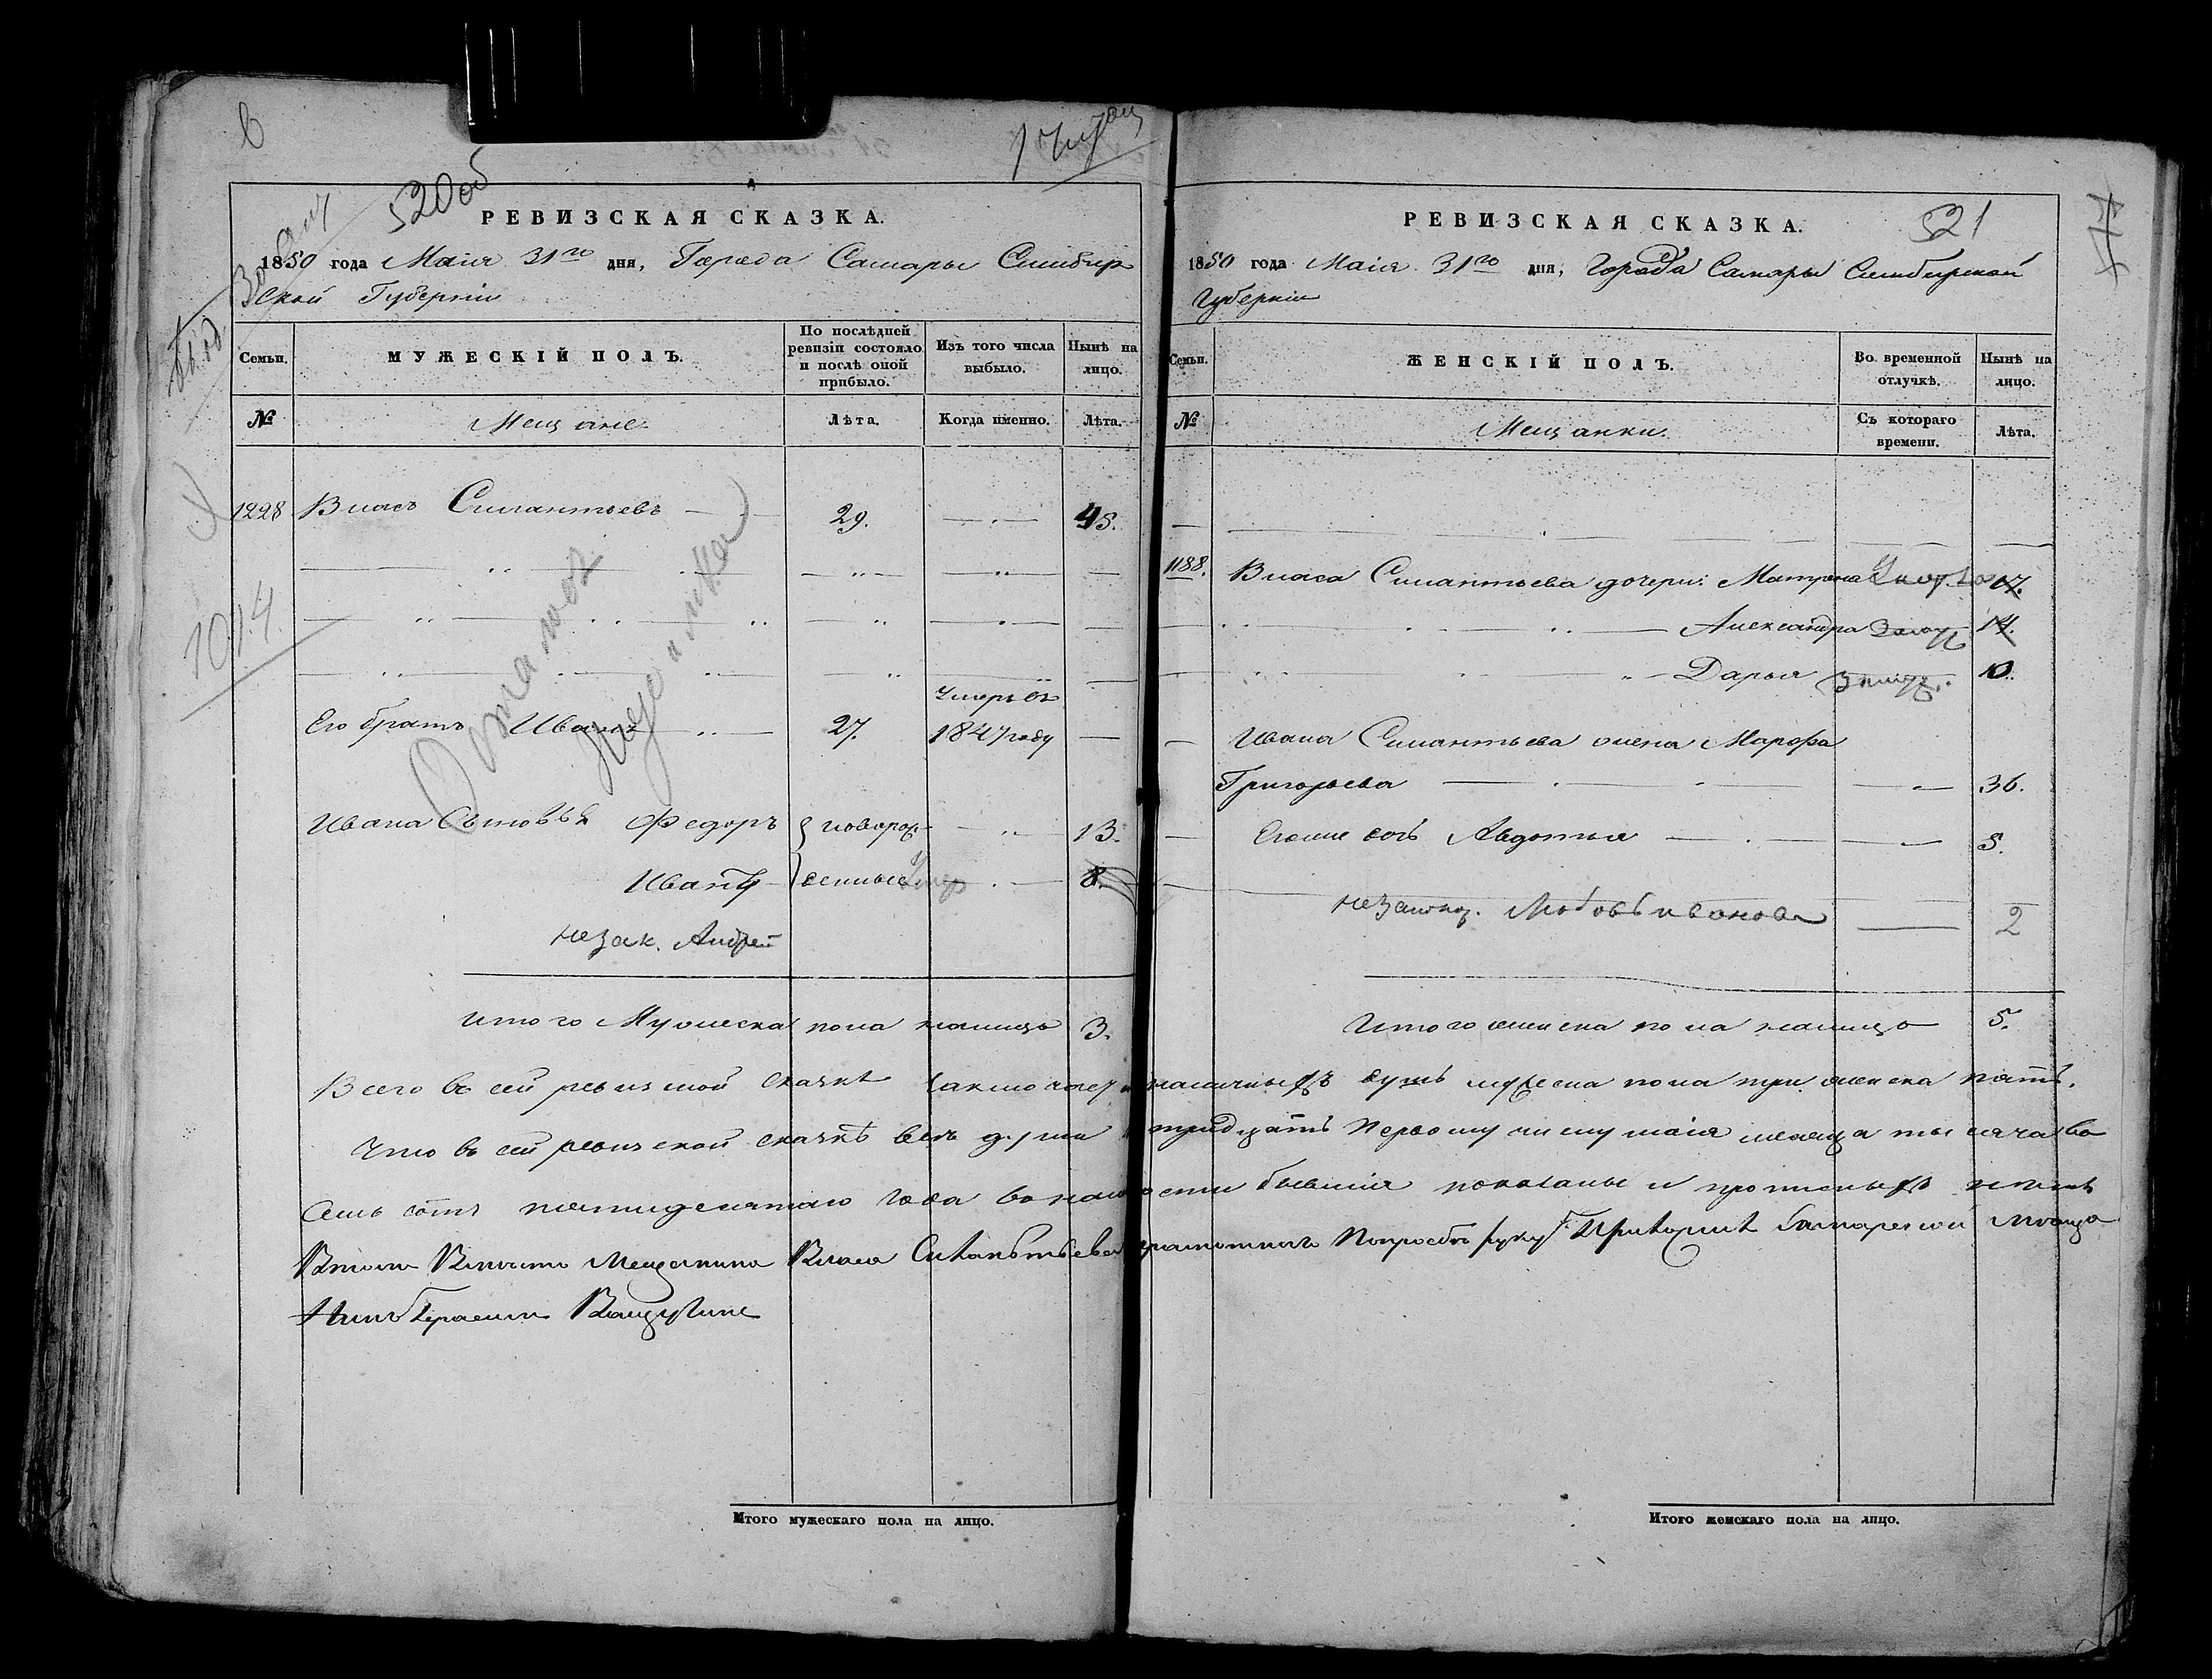 520 об
РЕВИЗСКАЯ СКАЗКА.
1850 года Маія 31го дня, Города Самары Симбир
ской Губерніи
Семьи.
МУЖЕСКІЙ ПОЛЪ.
По послѣдней ревизіи состояло и послѣ оной прибыло.
Изъ того числа выбыло.
Нынѣ на лицо.
№
Мещане
Лѣта.
Когда именно.
Лѣта.
1228 Власъ Силантьевъ 29. 45.
1014.
Умеръ въ
Его братъ Иванъ 27. 1847 году
Ивана Сыновья Федоръ новорож 13.
Иванъ денные Умер 8.
незак. Андрей
Итого Мужеска пола налицо 3.
Итого мужескаго пола на лицо.
521
РЕВИЗСКАЯ СКАЗКА.
1850 года Маія 31го дня, Города Самары Симбирской
Губерніи
Семьи.
ЖЕНСКІЙ ПОЛЪ.
Во временной отлучкѣ.
Нынѣ на лицо.
№
Мещанки.
Съ котораго времени.
Лѣта.
1188. Власа Силантьева дочери: Матрена 17.
Александра Замуж 14.
Дарья Замуж. 10.
Ивана Силантьева жена Марфа
Григорьева 36.
Его же дочь Авдотья 5.
незакон. Любовь Иванова 2
Итого женска пола налицо 5.
Всего въ сей ревизкой Сказкѣ заключает наличныхъ душъ мужеска пола три женска пять.
Что въ сей ревизской сказкѣ всѣ души тридцать первому числу маія месяца тысяча во
семь сотъ пятидесятаго года въ налично сти бывшія показаны и прописныхъ нѣтъ
Мещанина Власа Силантьева неграмотнаго По прозбѣ руку Приложилъ Самарской Меща
нинъ Герасим
Итого женскаго пола на лицо.